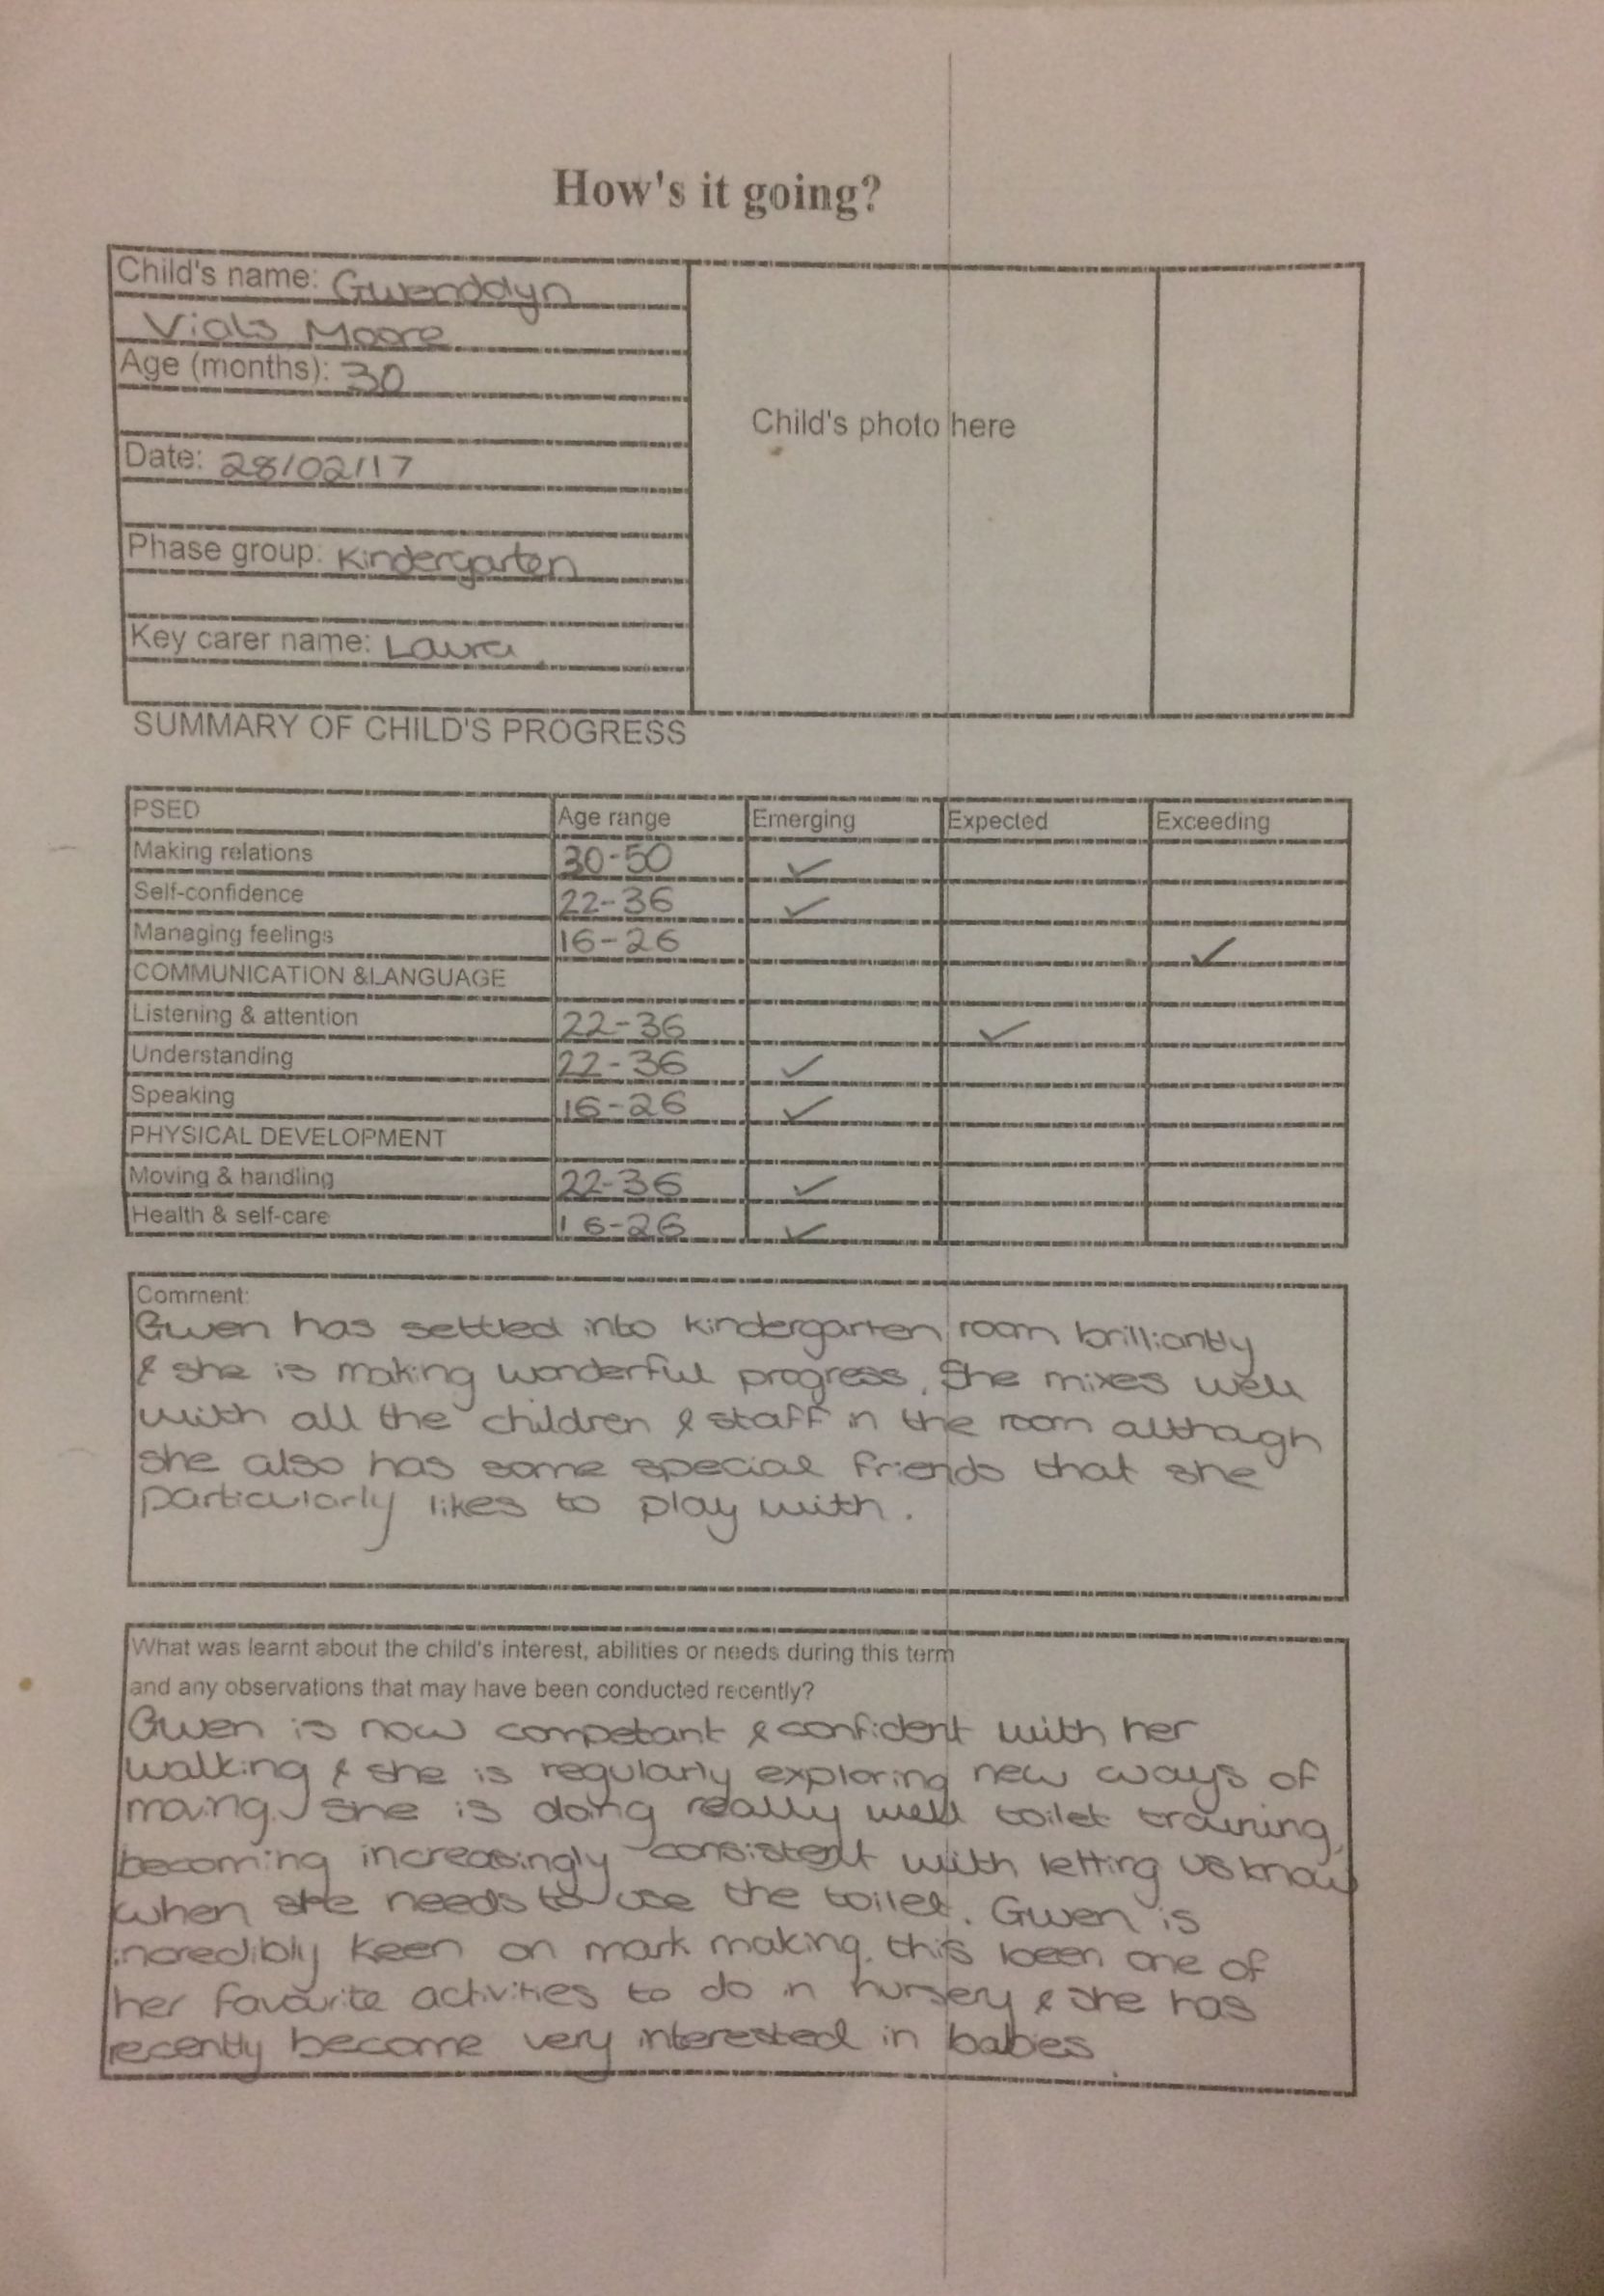 How's it going?
Child's name: Gwenddyn
Vials Moore
Age (months): 30
Child's photo here
Date: 28/02/17
Phase group: Kindergarten
Key carer name: Laura
SUMMARY OF CHILD'S PROGRESS
PSED Age range Emerging Expected Exceeding
Making relations 30-50 ✓
Self-confidence 22-36 ✓
Managing feelings 16-26 ✓
COMMUNICATION &LANGUAGE
Listening & attention 22-36 ✓
Understanding 22-36 ✓
Speaking 16-26 ✓
PHYSICAL DEVELOPMENT
Moving & handling 22-36 ✓
Health & self-care 16-26 ✓
Comment:
Gwen has settled into kindergarten room brilliantly
& she is making wonderful progress. She mixes well
with all the children & staff in the room although
she also has some special friends that she
particularly likes to play with.
What was learnt about the child's interest, abilities or needs during this term
and any observations that may have been conducted recently?
Gwen is now competant & confident with her
walking & she is regularly exploring new ways of
moving. She is doing really well toilet training,
becoming increasingly consistent with letting us know
when she needs to use the toilet. Gwen is
incredibly keen on mark making, this been one of
her favourite activities to do in nursery & she has
recently become very interested in babies.